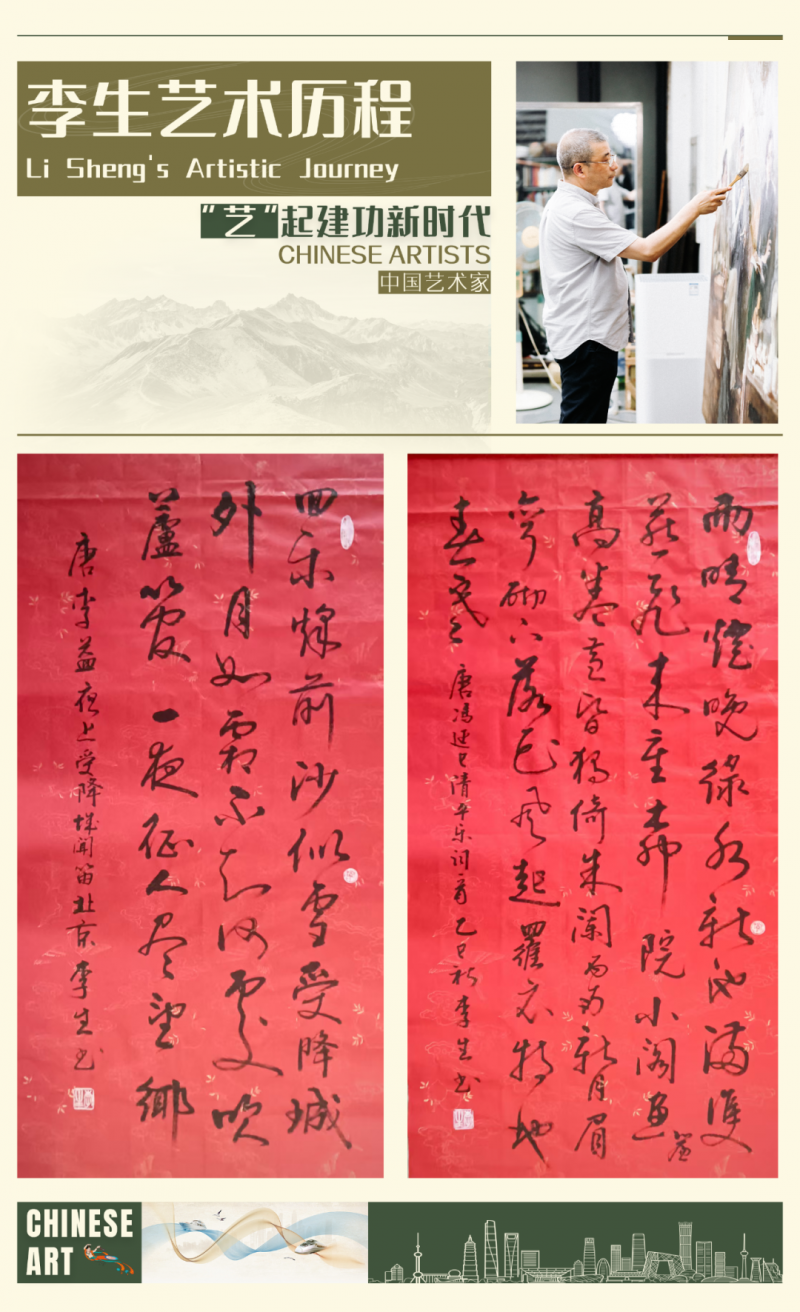 李生艺术历程
Li Sheng's Artistic Journey
“艺”起建功新时代
CHINESE ARTISTS
中国艺术家
回乐烽前沙似雪受降城
外月如霜不知何處吹
蘆管一夜征人尽望鄉
唐李益夜上受降城聞笛北京李生书
雨晴烟晚绿水新池满雙
燕飞来垂柳院小阁画帘
高卷黄昏独倚朱阑西南新月眉
弯砌下落花风起羅衣特地
春寒 唐冯延巳清平乐词一首乙巳秋李生书
CHINESE
ART